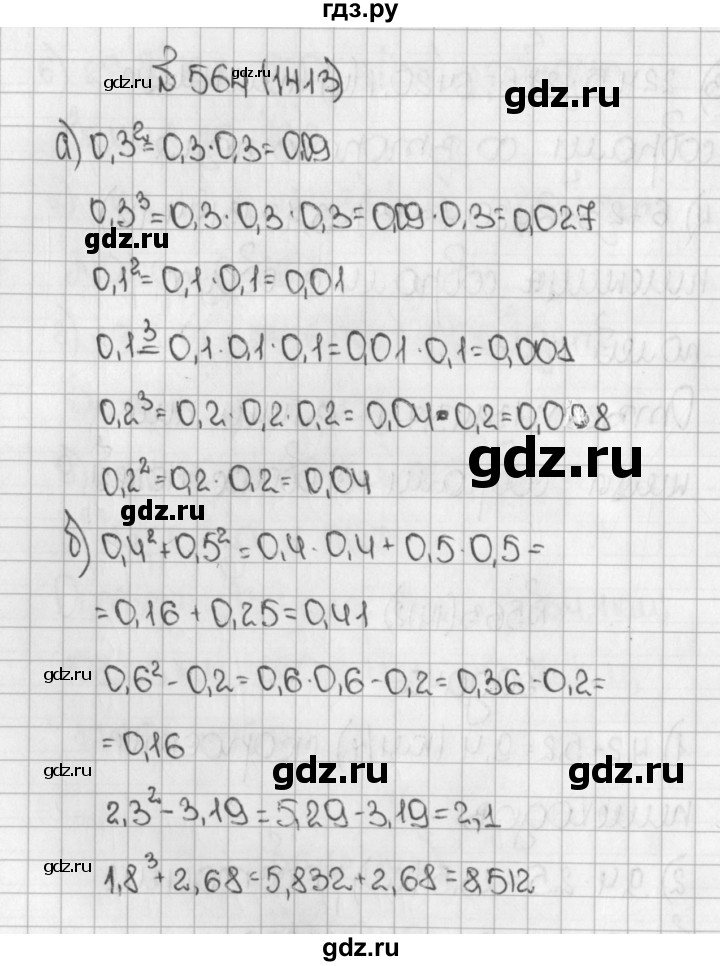 гдз.ру
№ 564 (1413)
gdz.ru gdz.ru
а) 0,3² = 0,3 · 0,3 = 0,09
0,3³ = 0,3 · 0,3 · 0,3 = 0,09 · 0,3 = 0,027
gdz.ru
0,1² = 0,1 · 0,1 = 0,01
0,1³ = 0,1 · 0,1 · 0,1 = 0,01 · 0,1 = 0,001
0,2³ = 0,2 · 0,2 · 0,2 = 0,04 · 0,2 = 0,008
gdz.ru
0,2² = 0,2 · 0,2 = 0,04
gdz.ru
б) 0,4² + 0,5² = 0,4 · 0,4 + 0,5 · 0,5 =
= 0,16 + 0,25 = 0,41
gdz.ru 0,6² - 0,2 = 0,6 · 0,6 - 0,2 = 0,36 - 0,2 =
= 0,16
gdz.ru gdz.ru gdz.ru
2,3² - 3,19 = 5,29 - 3,19 = 2,1
gdz.ru 1,8³ + 2,68 = 5,832 + 2,68 = 8,512
gdz.ru